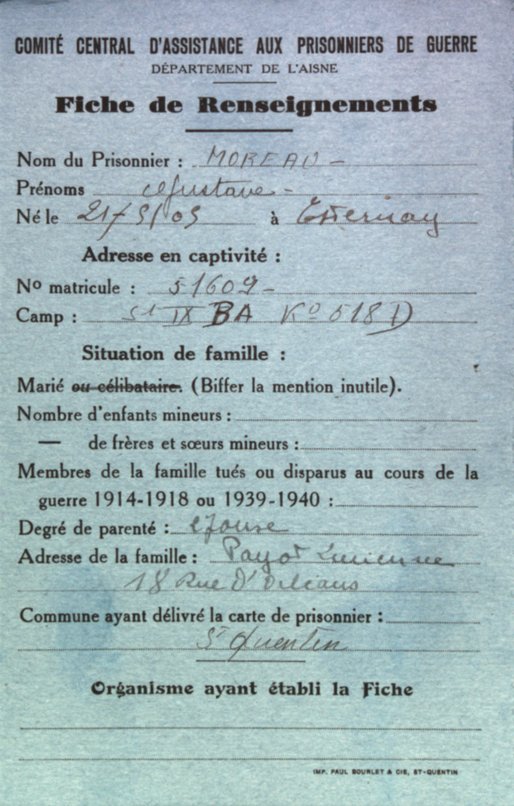 COMITÉ CENTRAL D'ASSISTANCE AUX PRISONNIERS DE GUERRE
DÉPARTEMENT DE L'AISNE
Fiche de Renseignements
Nom du Prisonnier : MOREAU -
Prénoms Gustave -
Né le 21/5/05 à Esternay
Adresse en captivité :
No matricule : 51609 -
Camp : St IX BA Ko 518 D
Situation de famille :
Marié ou célibataire. (Biffer la mention inutile).
Nombre d'enfants mineurs :
— de frères et sœurs mineurs :
Membres de la famille tués ou disparus au cours de la
guerre 1914-1918 ou 1939-1940 :
Degré de parenté : Epouse
Adresse de la famille : Payot Lucienne
18 Rue D'Orléans
Commune ayant délivré la carte de prisonnier :
St Quentin
Organisme ayant établi la Fiche
IMP. PAUL BOURLET & CIE, ST-QUENTIN